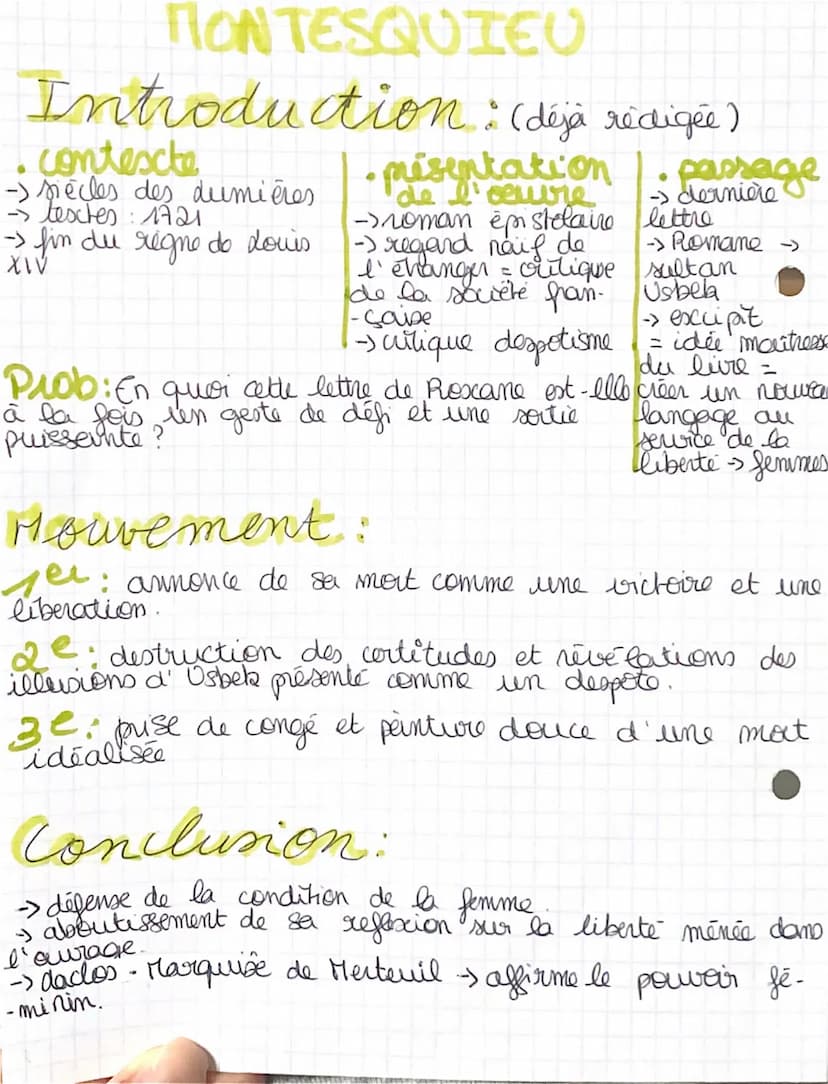 MONTESQUIEU
Introduction : (déjà rédigée)
• contexte
-> siècles des lumières
-> textes : 1721
-> fin du règne de Louis
XIV
• présentation
de l'oeuvre
-> roman épistolaire
-> regard naïf de
l'étranger = critique
de la société fran-
-çaise
-> critique despotisme
• passage
-> dernière
lettre
-> Romane ->
sultan
Usbek
-> excipit
= idée maitresse
du livre =
créer un nouveau
langage au
service de la
liberté -> femmes
Prob : En quoi cette lettre de Roxane est-elle
à la fois un geste de défi et une sortie
puissante ?
Mouvement :
1er : annonce de sa mort comme une victoire et une
liberation.
2e : destruction des certitudes et révélations des
illusions d'Usbek présenté comme un despote.
3e : prise de congé et peinture douce d'une mort
idéalisée
Conclusion :
-> défense de la condition de la femme.
-> aboutissement de sa reflexion sur la liberté ménée dans
l'ouvrage.
-> Laclos - Marquise de Merteuil -> affirme le pouvoir fé-
-minin.